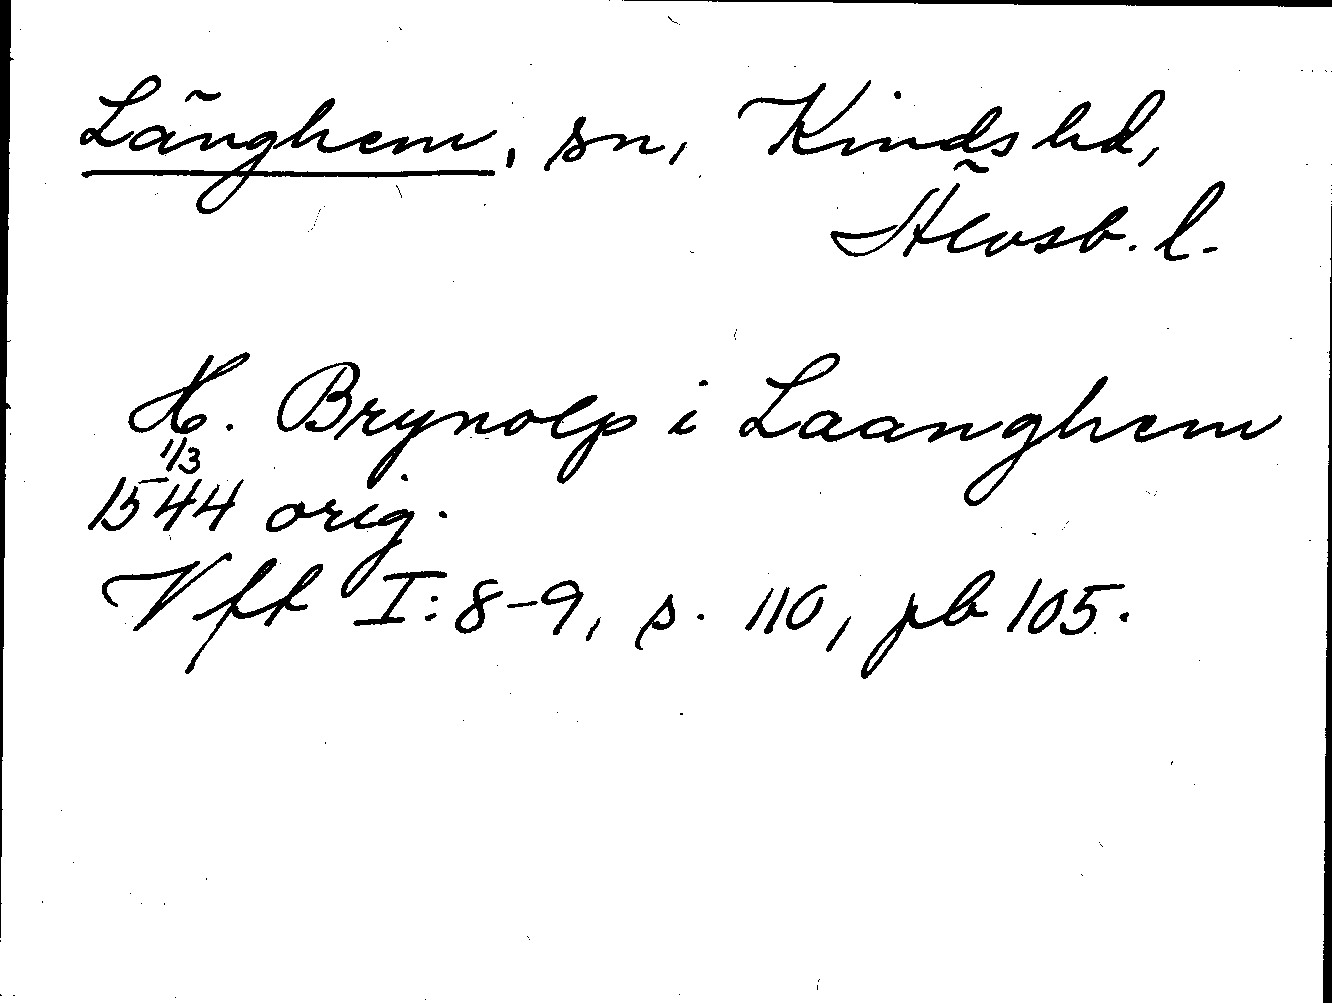 Länghem, sn, Kinds hd,
Älvsb. l.
H. Brynolp i Laanghem
1/3
1544 orig.
Vfft I: 8-9, s. 110, pb 105.